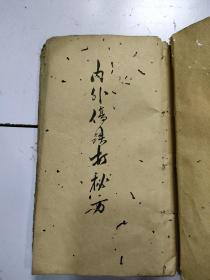 内外傷跌打秘方